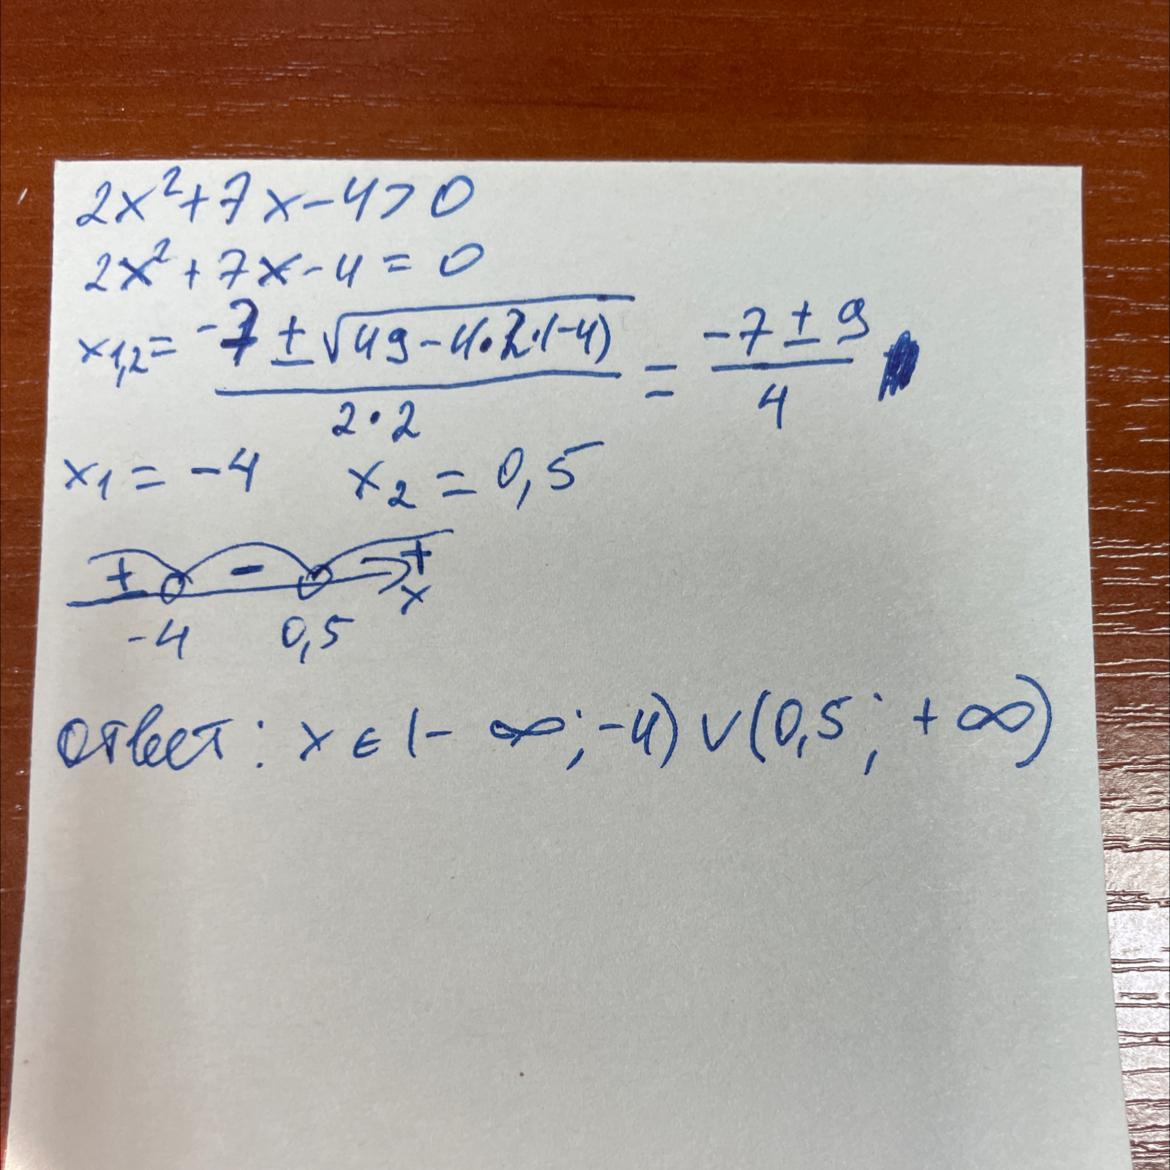 2x²+7x-4>0
2x²+7x-4=0
x1,2= (-7±√(49-4·2·(-4)))/(2·2) = (-7±9)/4
x1=-4 x2=0,5
+ - + x
-4 0,5
Ответ: x∈(-∞;-4)∨(0,5;+∞)